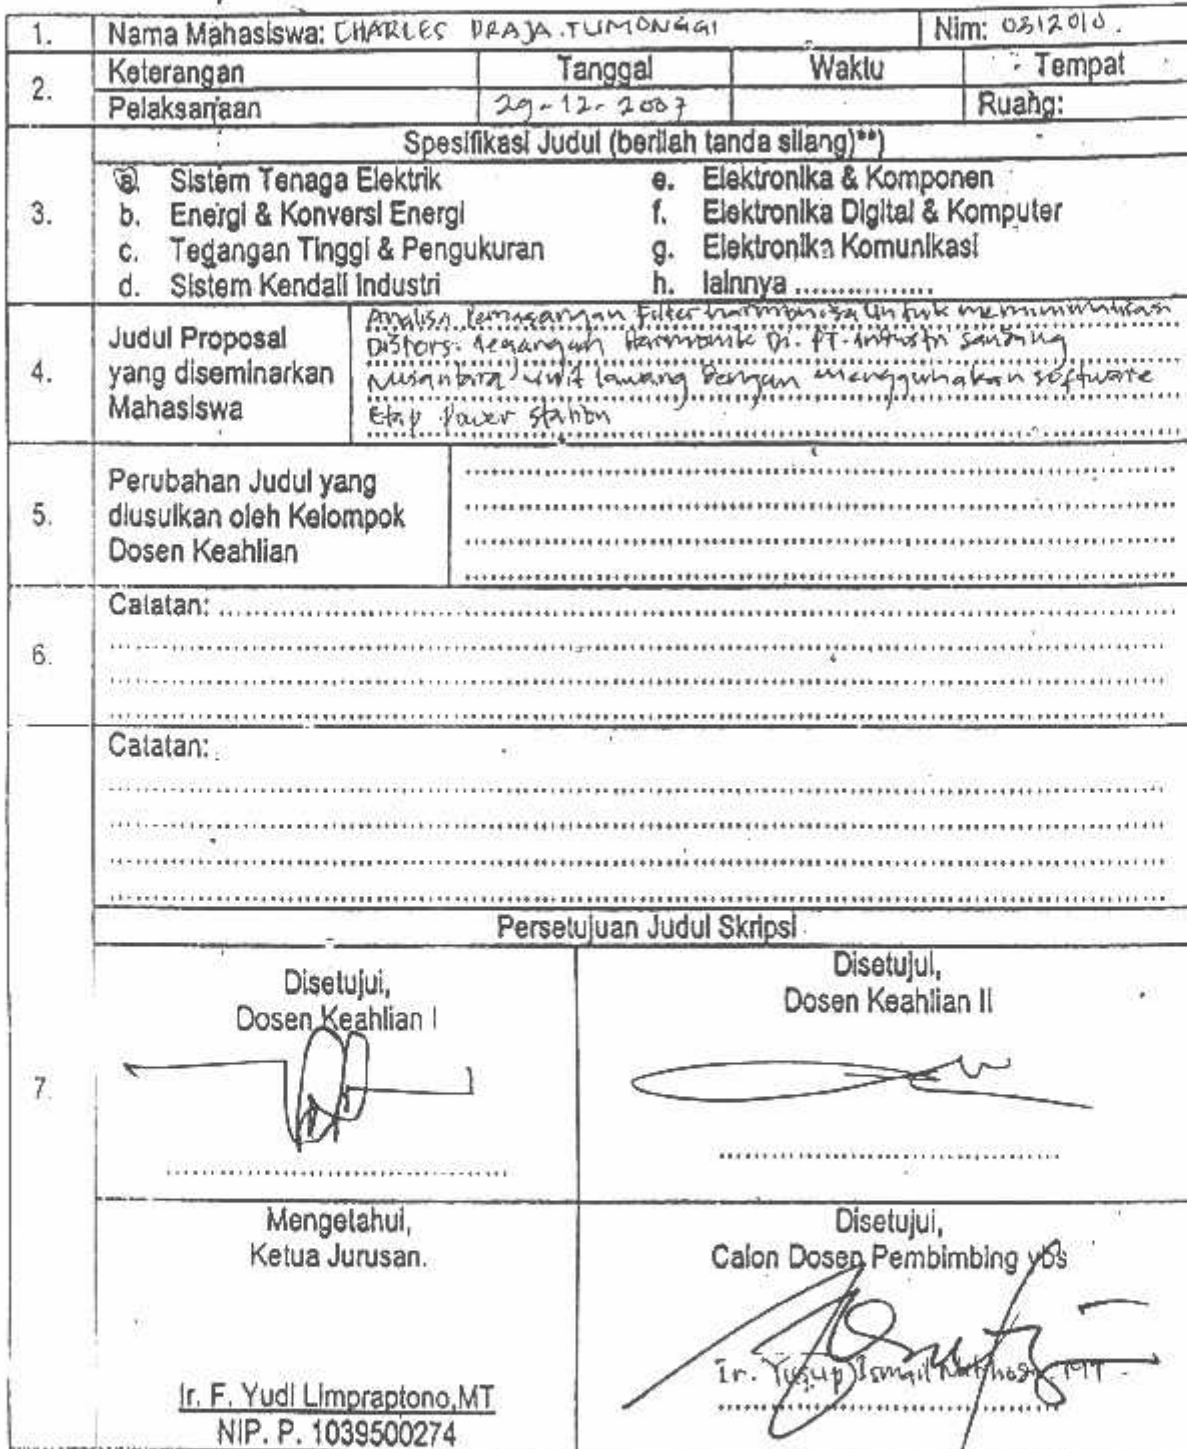 1. Nama Mahasiswa: CHARLES PRAJA.TUMONGGI Nim: 0312010.
2. Keterangan Tanggal Waktu Tempat
Pelaksanaan 29-12-2007 Ruang:
3. Spesifikasi Judul (berilah tanda silang)**)
a. Sistem Tenaga Elektrik e. Elektronika & Komponen
b. Energi & Konversi Energi f. Elektronika Digital & Komputer
c. Tegangan Tinggi & Pengukuran g. Elektronika Komunikasi
d. Sistem Kendali Industri h. lainnya ................
4. Judul Proposal yang diseminarkan Mahasiswa
Analisa Pemasangan Filter harmonisa Untuk meminimilisasi
Distorsi tegangan Harmonik Di. PT. Industri Sandang
Nusantara unit lawang Dengan menggunakan software
Etap Power station
5. Perubahan Judul yang
diusulkan oleh Kelompok
Dosen Keahlian
6. Catatan:
Catatan:
Persetujuan Judul Skripsi
7. Disetujui,
Dosen Keahlian I
Disetujui,
Dosen Keahlian II
Mengetahui,
Ketua Jurusan.
Ir. F. Yudi Limpraptono,MT
NIP. P. 1039500274
Disetujui,
Calon Dosen Pembimbing ybs
Ir. Yusup Ismail Nakhoda, MT.